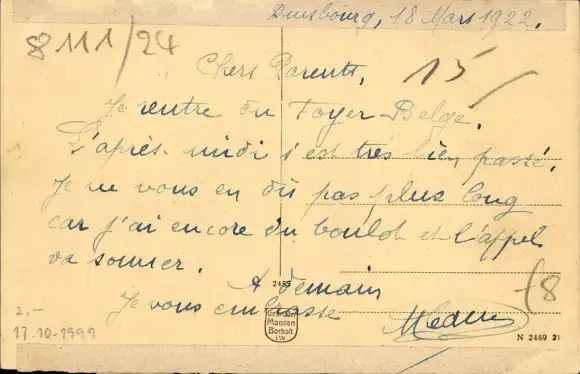 Duisbourg, 18 Mars 1922.
8111/24
15
Chers Parents,
Je rentre du Foyer Belge.
L'après-midi s'est très bien passé.
Je ne vous en dis pas plus long
car j'ai encore du boulot et l'appel
va sonner.
A demain
Je vous embrasse
2489
Gebrüder
Mannen
Bocholt
i.W.
2,-
17-10-1999
18
N 2489 2)